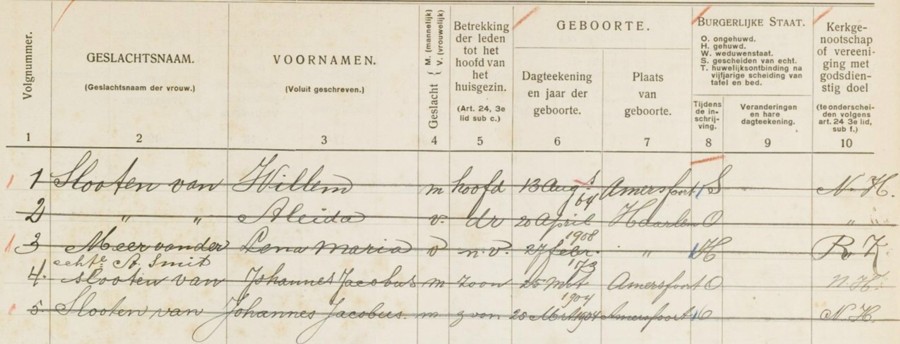 Volgnummer.
GESLACHTSNAAM.
(Geslachtsnaam der vrouw.)
VOORNAMEN.
(Voluit geschreven.)
Geslacht { M. (mannelijk) V. (vrouwelijk)
Betrekking
der leden
tot het
hoofd van
het
huisgezin.
(Art. 24, 3e
lid sub c.)
GEBOORTE.
Dagteekening
en jaar der
geboorte.
Plaats
van
geboorte.
BURGERLIJKE STAAT.
O. ongehuwd.
H. gehuwd.
W. weduwenstaat.
S. gescheiden van echt.
T. huwelijksontbinding na
vijfjarige scheiding van
tafel en bed.
Tijdens
de in-
schrij-
ving.
Veranderingen
en hare
dagteekening.
Kerkge-
nootschap
of vereeni-
ging met
godsdien-
stig doel
(te onderschei-
den volgens
art. 24 3e lid,
sub f.)
1 2 3 4 5 6 7 8 9 10
1 Slooten van Willem m hoofd 13 Aug. '64 Amersfoort S N. H.
2 " " Aleida v. dr 20 April 1908 Haarlem O " "
3 Meer van der Lena Maria v n.v. 27 febr. '73 " H R. K.
echte St. Smit
4 Slooten van Johannes Jacobus m zoon 28 Mrt 1904 Amersfoort O N. H.
5 Slooten van Johannes Jacobus. m zoon 28 Mrt 1904 Amersfoort O N. H.